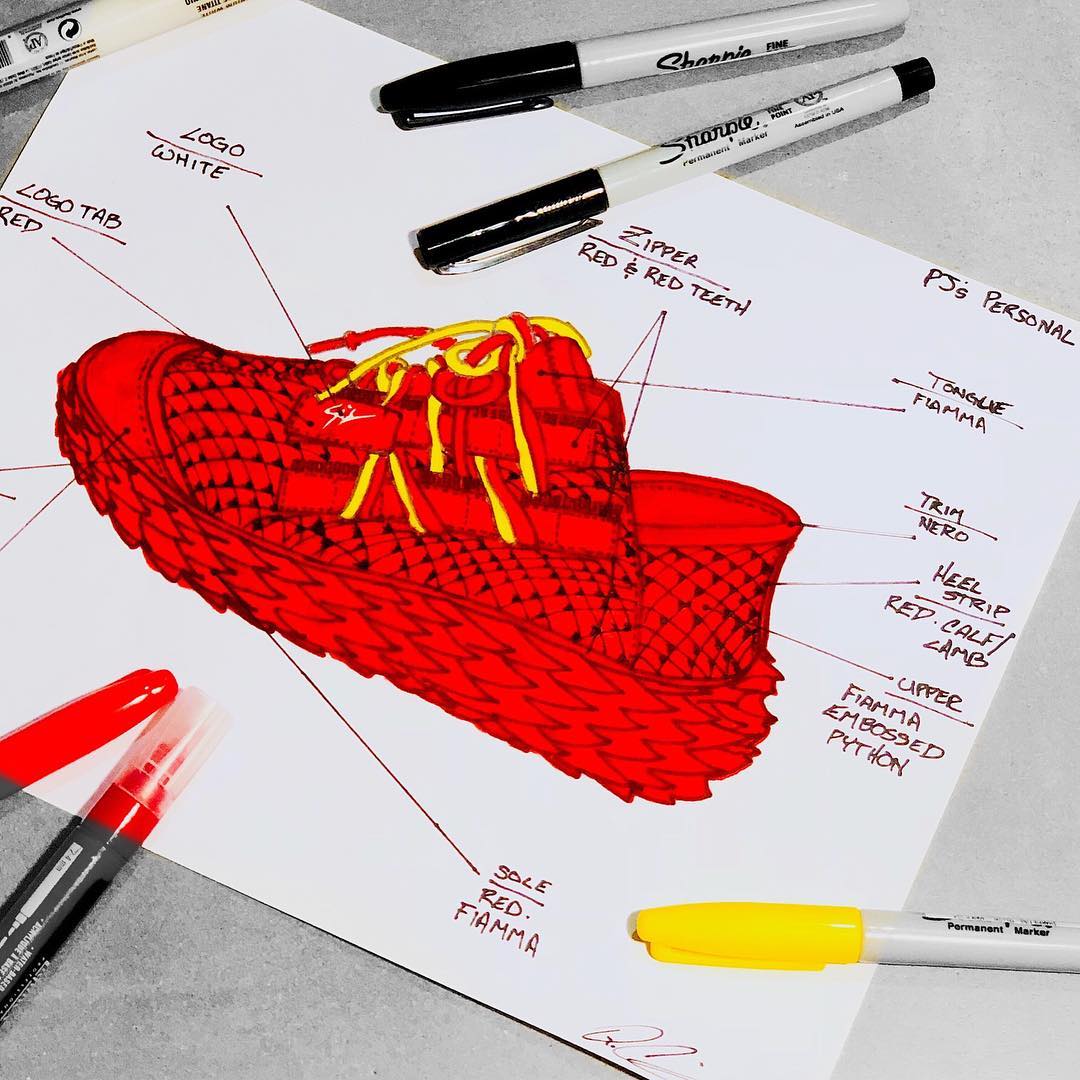 Sharpie
FINE
Sharpie
FINE
POINT
Permanent Marker
Assembled in USA
LOGO
WHITE
LOGO TAB
RED
ZIPPER
RED & RED TEETH
PJ's PERSONAL
TONGUE
FIAMMA
TRIM
NERO
HEEL
STRIP
RED. CALF/
LAMB
UPPER
FIAMMA
EMBOSSED
PYTHON
SOLE
RED.
FIAMMA
Permanent Marker